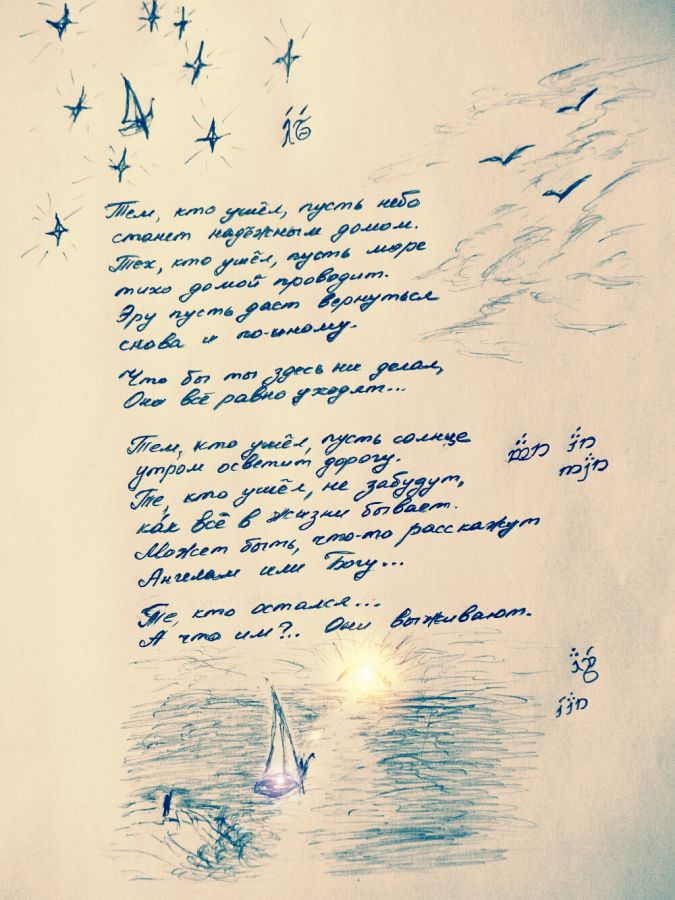 Тем, кто ушёл, пусть небо
станет надёжным домом.
Тех, кто ушёл, пусть море
тихо домой проводит.
Эру пусть даст вернуться
снова и по-иному.
Что бы ты здесь ни делал,
Они всё равно уходят...
Тем, кто ушёл, пусть солнце
утром осветит дорогу.
Те, кто ушёл, не забудут,
как всё в жизни бывает.
Может быть, что-то расскажут
Ангелам или Богу...
Те, кто остался...
А что им?.. Они выживают.